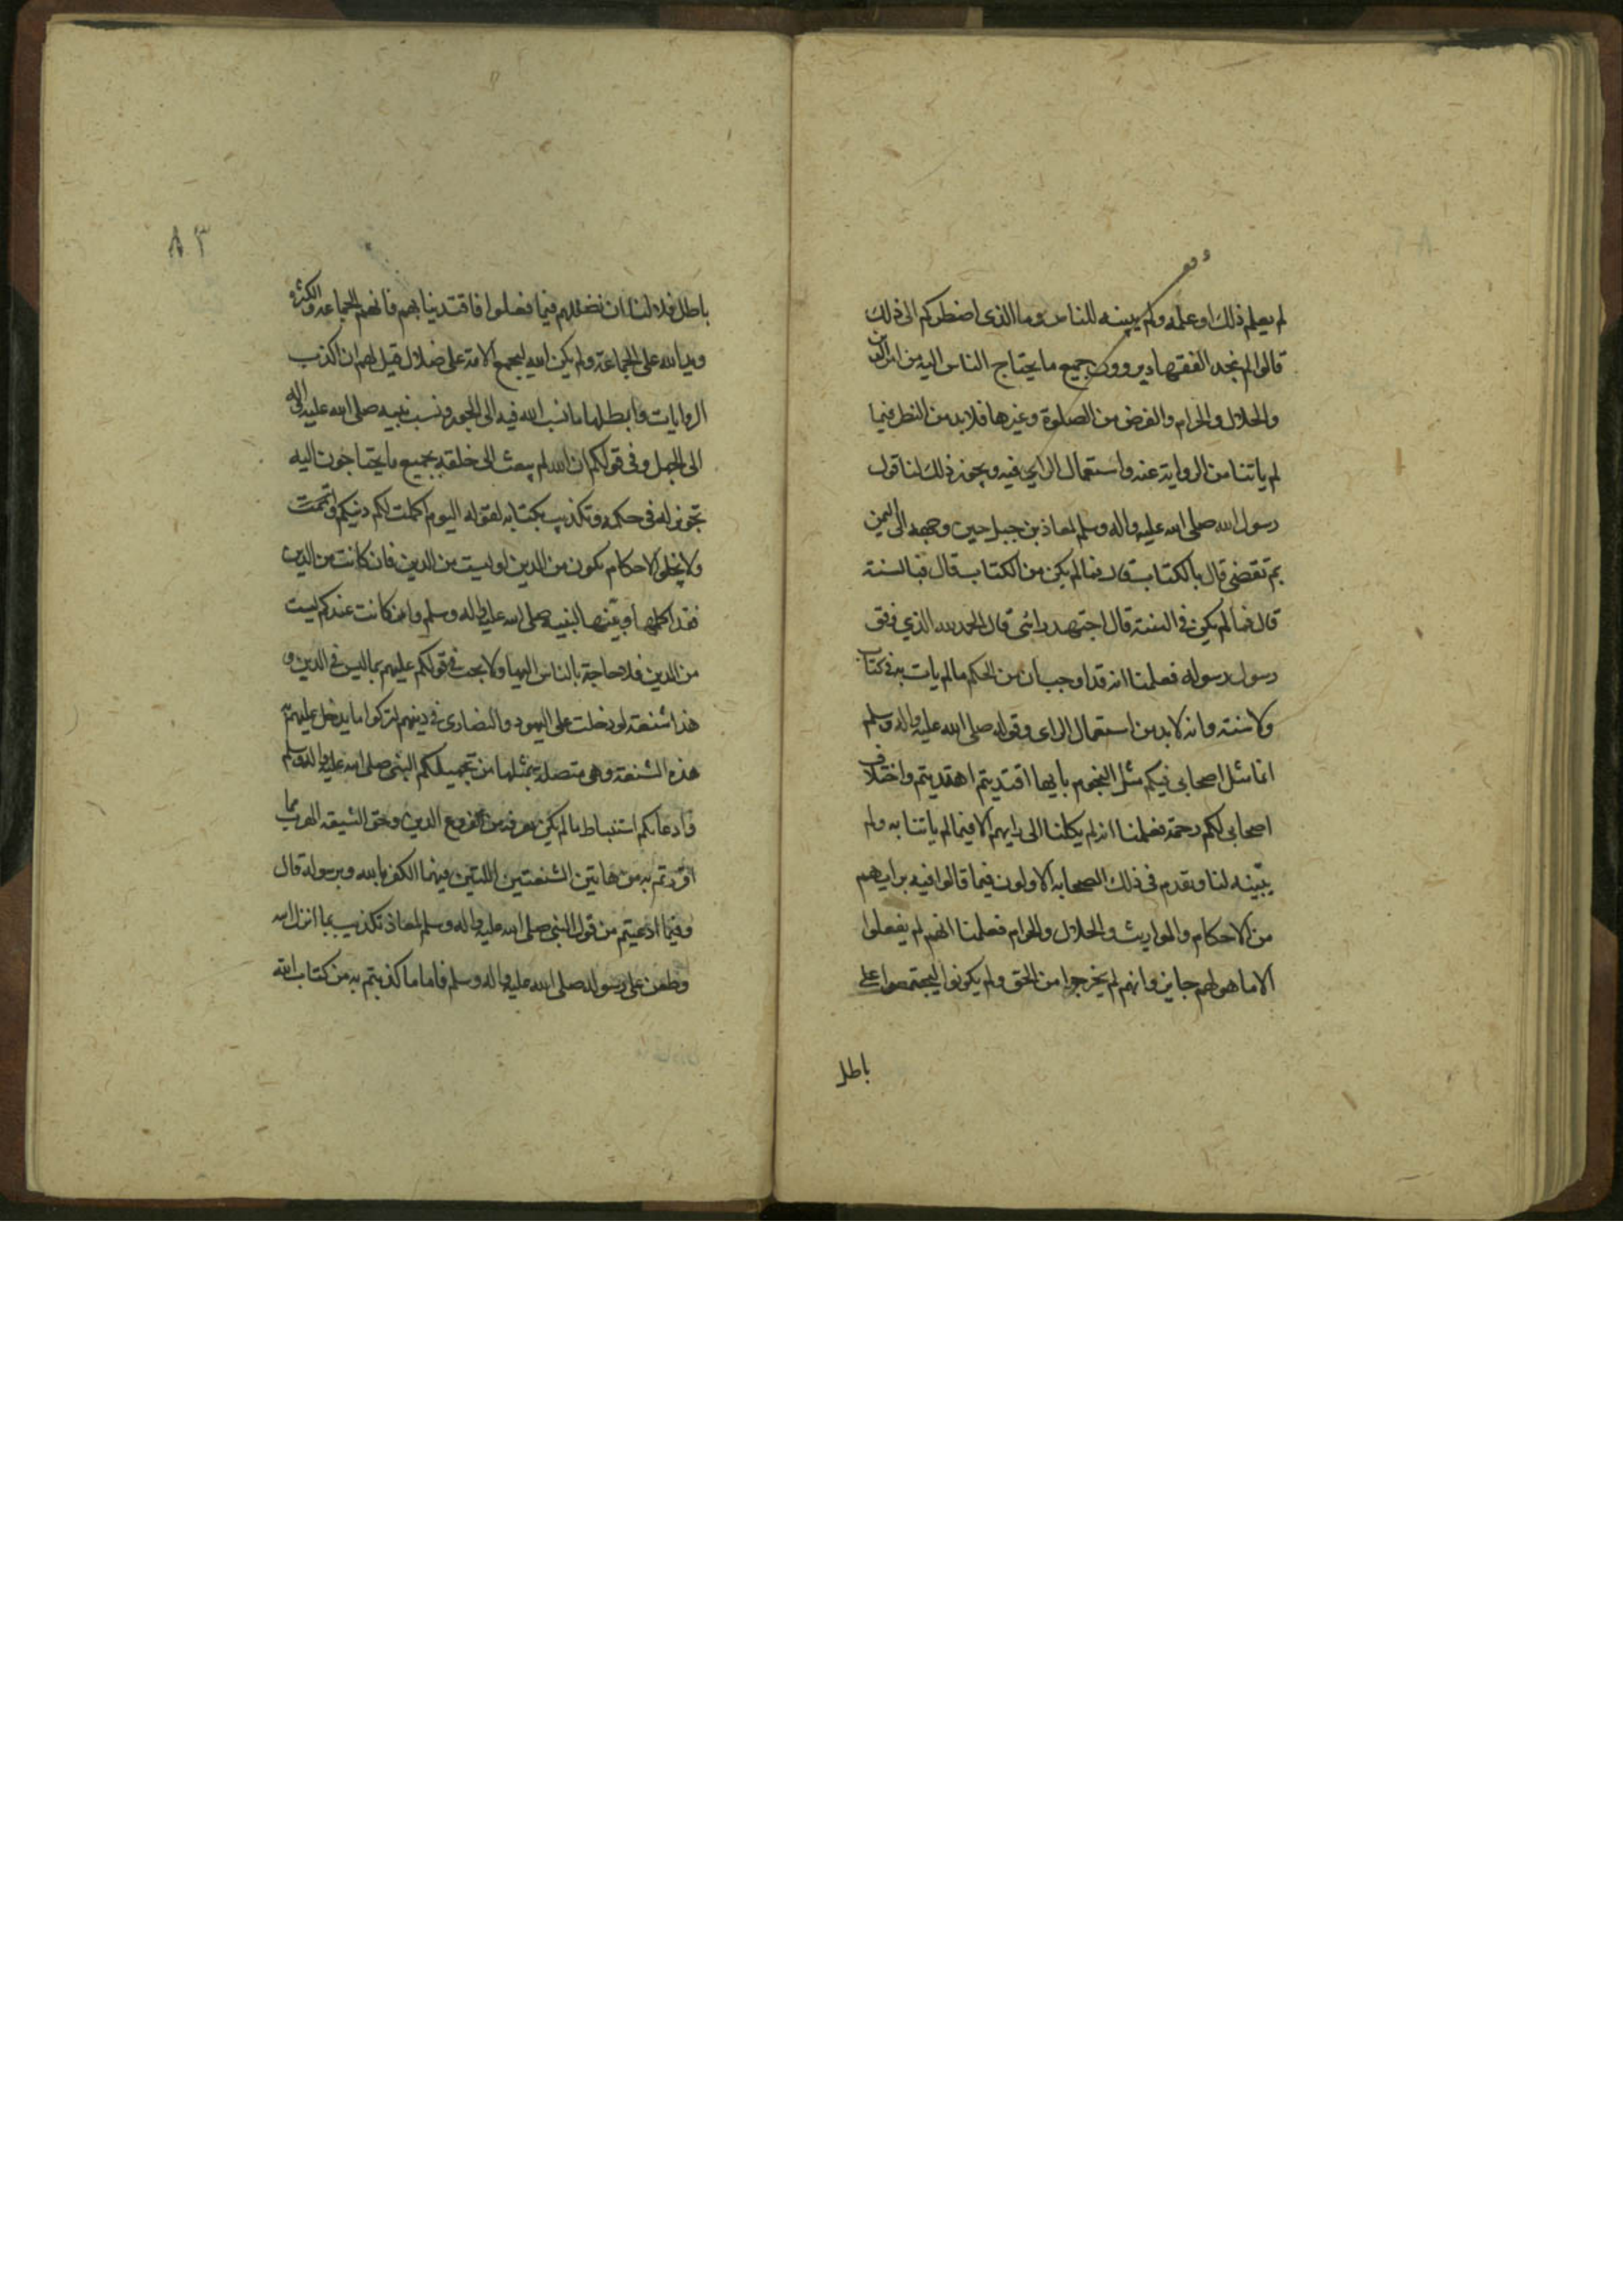 لم يعلم ذلك او علمه ولم يبينه للناس وما الذى اضطركم الى ذلك
قالوا لم نجد الفقهاء يروون جميع ما يحتاج الناس اليه من امر الدين
والحلال والحرام والفرض من الصلوة وغيرها فلابد من النظر فيما
لم ياتنا من الرواية عنه واستعمال الراي فيه ويجوز ذلك لنا قول
رسول الله صلى الله عليه واله وسلم لمعاذ بن جبل حين وجهه الى اليمن
بم تقضى قال بالكتاب قال فما لم يكن من الكتاب قال فبالسنة
قال فما لم يكن فى السنة قال اجتهد رائى قال الحمد لله الذي وفق
رسول رسوله فعلمنا انه قد اوجب ان من الحكم ما لم يات به فى كتاب
ولا سنة وانه لابد من استعمال الراى وقوله صلى الله عليه واله وسلم
انما مثل اصحابى فيكم مثل النجوم بايها اقتديتم اهتديتم واختلاف
اصحابى لكم رحمة فعلمنا انه لم يكلنا الى رايهم الا فيما لم ياتنا به ولم
يبينه لنا وتقدم فى ذلك الصحابه الاولون فيما قالوا فيه برايهم
من الاحكام والمواريث والحلال والحرام فعلمنا انهم لم يفعلوا
الا ما هو لهم جايز وانهم لم يخرجوا من الحق ولم يكونوا ليجتمعوا على
باطل
٨٣
باطل فلا لنا ان نضللهم فيما فعلوا فاقتدينا بهم فانهم الجماعه والكثره
ويد الله على الجماعة ولم يكن الله ليجمع الامة على ضلال قيل لهم ان اكذب
الروايات وابطلها ما نسب الله فيه الى الجور ونسب نبيه صلى الله عليه واله
الى الجهل وفى قولكم ان الله لم يبعث الى خلقه بجميع ما يحتاجون اليه
تجويز له فى حكمه وتكذيب بكتابه لقوله اليوم اكملت لكم دينكم واتممت
ولا يخلوا الاحكام يكون من الدين او ليست من الدين فان كانت من الدين
فقد اكملها وبينها لنبيه صلى الله عليه واله وسلم وان كانت عندكم ليست
من الدين فلا حاجة بالناس اليها ولا يجب فى قولكم عليهم بما ليس فى الدين و
هذا شنعة لو دخلت على اليهود والنصارى فى دينهم لتركوا ما يدخل عليهم به
هذه الشنعة وهى متصلة بمثلها من تجهيلكم النبى صلى الله عليه واله وسلم
وادعائكم استنباط ما لم يكن يعرفه من فروع الدين وحق الشيعة الهرب مما
اقررتم به من هاتين الشنعتين اللتين فيهما الكفر بالله وبرسوله قال
وفيما ادعيتم من قول النبى صلى الله عليه واله وسلم لمعاذ تكذيب بما انزل الله
وطعن على رسوله صلى الله عليه واله وسلم فاما ما كذبتم به من كتاب الله